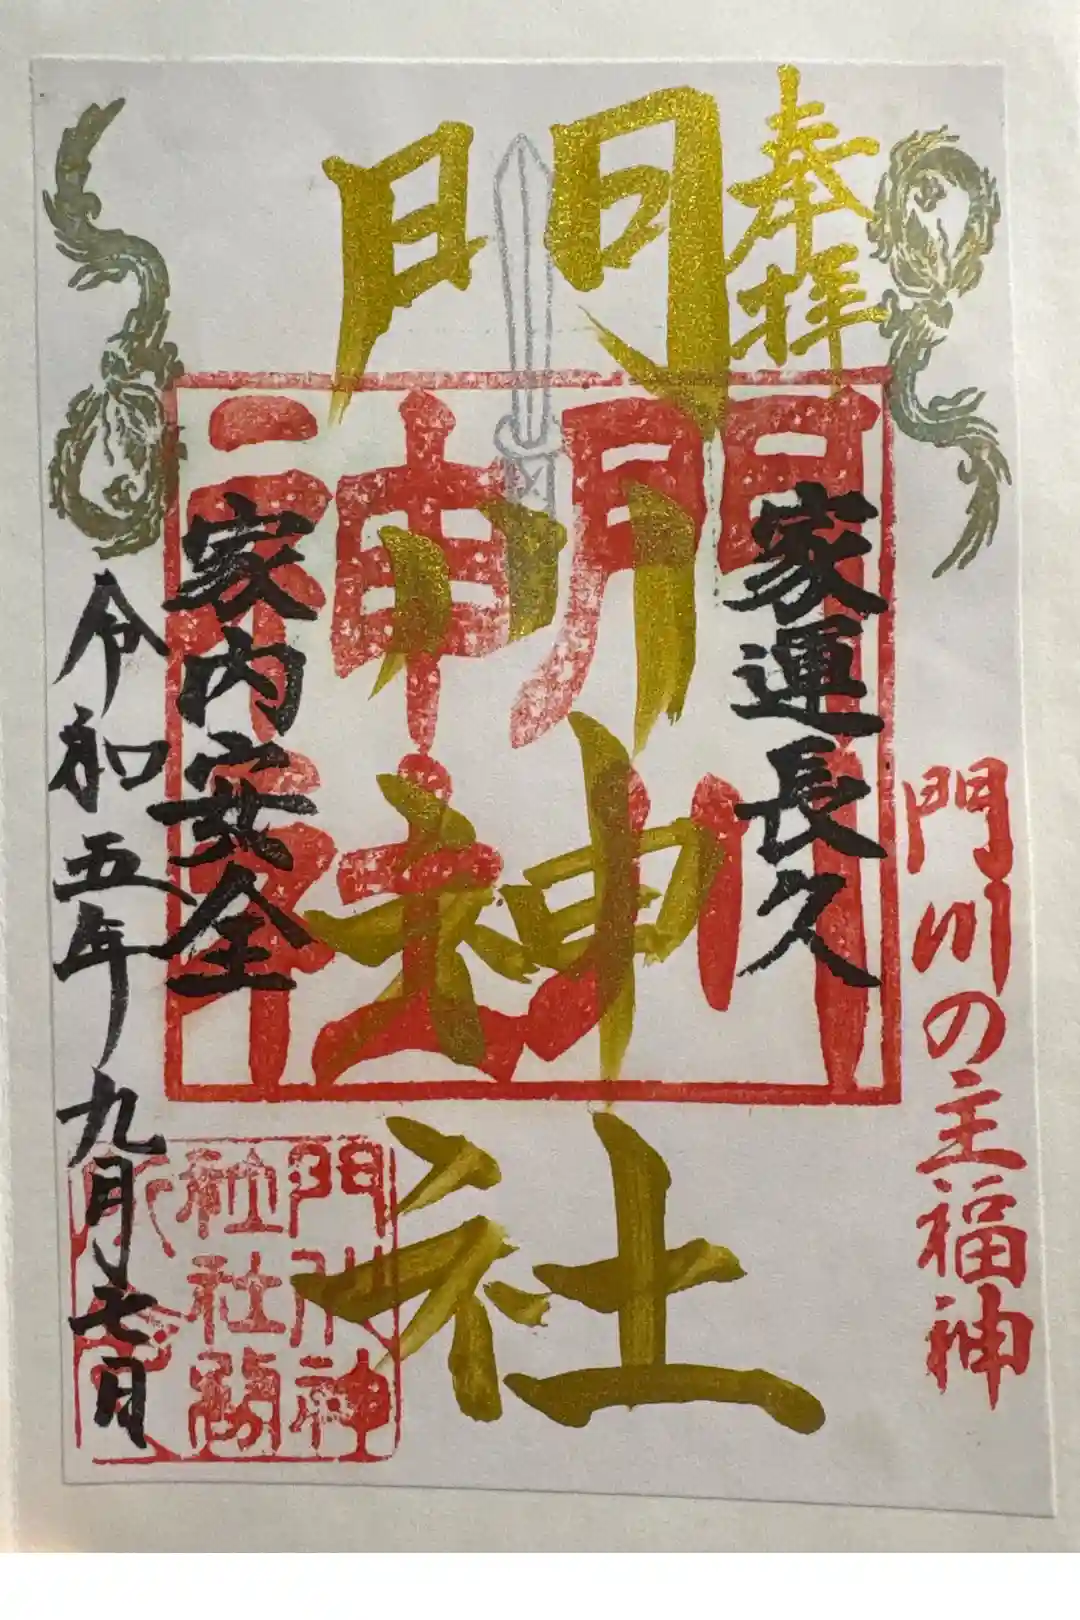 奉拝
門川の主福神
家運長久
門川神社
門川神社
家内安全
令和五年九月七日
門川神
社社務